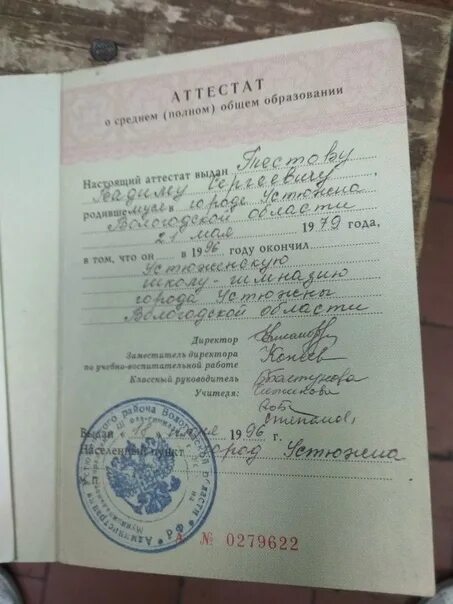 АТТЕСТАТ
о среднем (полном) общем образовании
Настоящий аттестат выдан Тестову
Вадиму Сергеевичу
родившемуся в городе Устюжна
Вологодской области
21 мая 1979 года,
в том, что он в 1996 году окончил
Устюженскую
школу-гимназию
города Устюжны
Вологодской области
Директор
Заместитель директора
по учебно-воспитательной работе
Классный руководитель
Учителя:
Выдан 1996 г.
Населенный пункт город Устюжна
А № 0279622